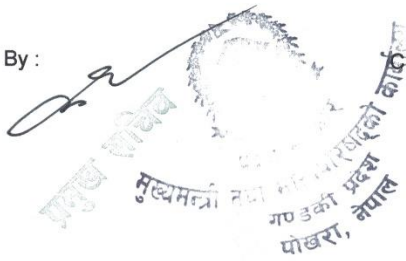 By :
C
प्रमुख सचिव
मुख्यमन्त्री तथा मन्त्रिपरिषद्को कार्यालय
गण्डकी प्रदेश
पोखरा, नेपाल